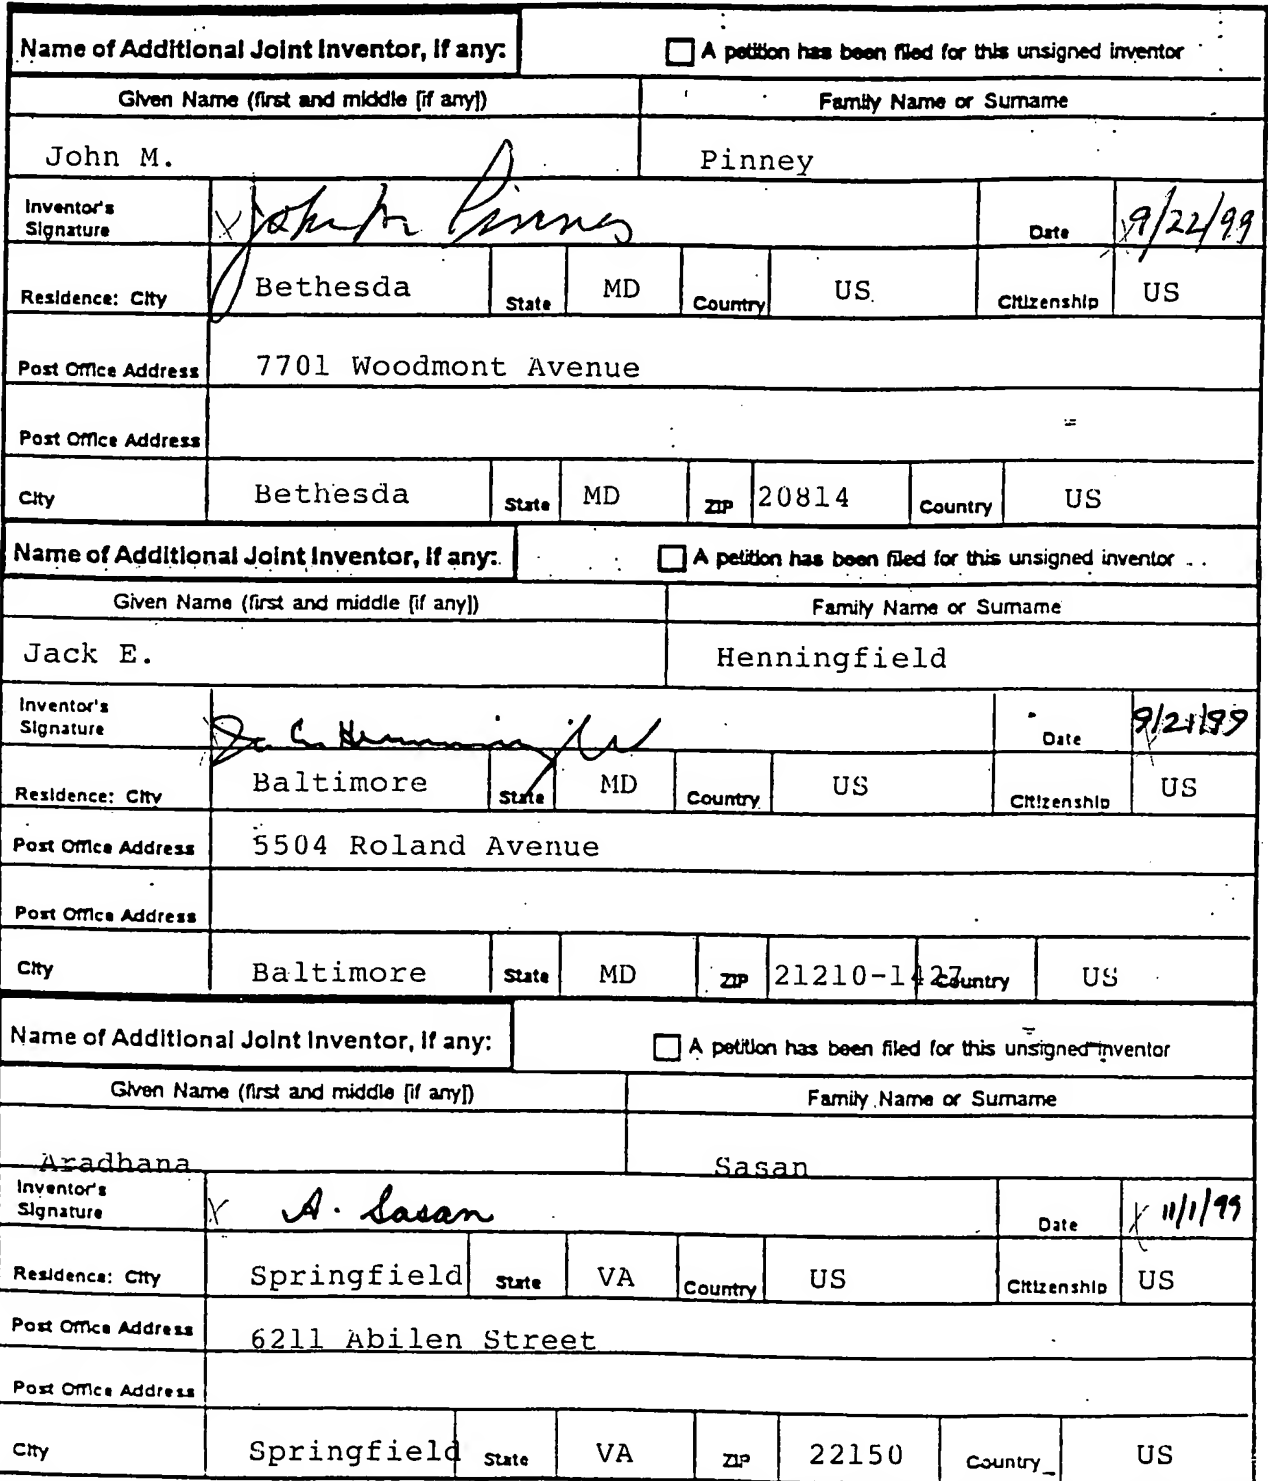 Name of Additional Joint Inventor, if any: A petition has been filed for this unsigned inventor
Given Name (first and middle [if any]) Family Name or Surname
John M. Pinney
Inventor's Signature X John M Pinney Date X 9/22/99
Residence: City Bethesda State MD Country US Citizenship US
Post Office Address 7701 Woodmont Avenue
Post Office Address
City Bethesda State MD ZIP 20814 Country US
Name of Additional Joint Inventor, if any: A petition has been filed for this unsigned inventor
Given Name (first and middle [if any]) Family Name or Surname
Jack E. Henningfield
Inventor's Signature Date 9/21/99
Residence: City Baltimore State MD Country US Citizenship US
Post Office Address 5504 Roland Avenue
Post Office Address
City Baltimore State MD ZIP 21210-1427 Country US
Name of Additional Joint Inventor, if any: A petition has been filed for this unsigned inventor
Given Name (first and middle [if any]) Family Name or Surname
Aradhana Sasan
Inventor's Signature X A. Sasan Date X 11/1/99
Residence: City Springfield State VA Country US Citizenship US
Post Office Address 6211 Abilen Street
Post Office Address
City Springfield State VA ZIP 22150 Country US